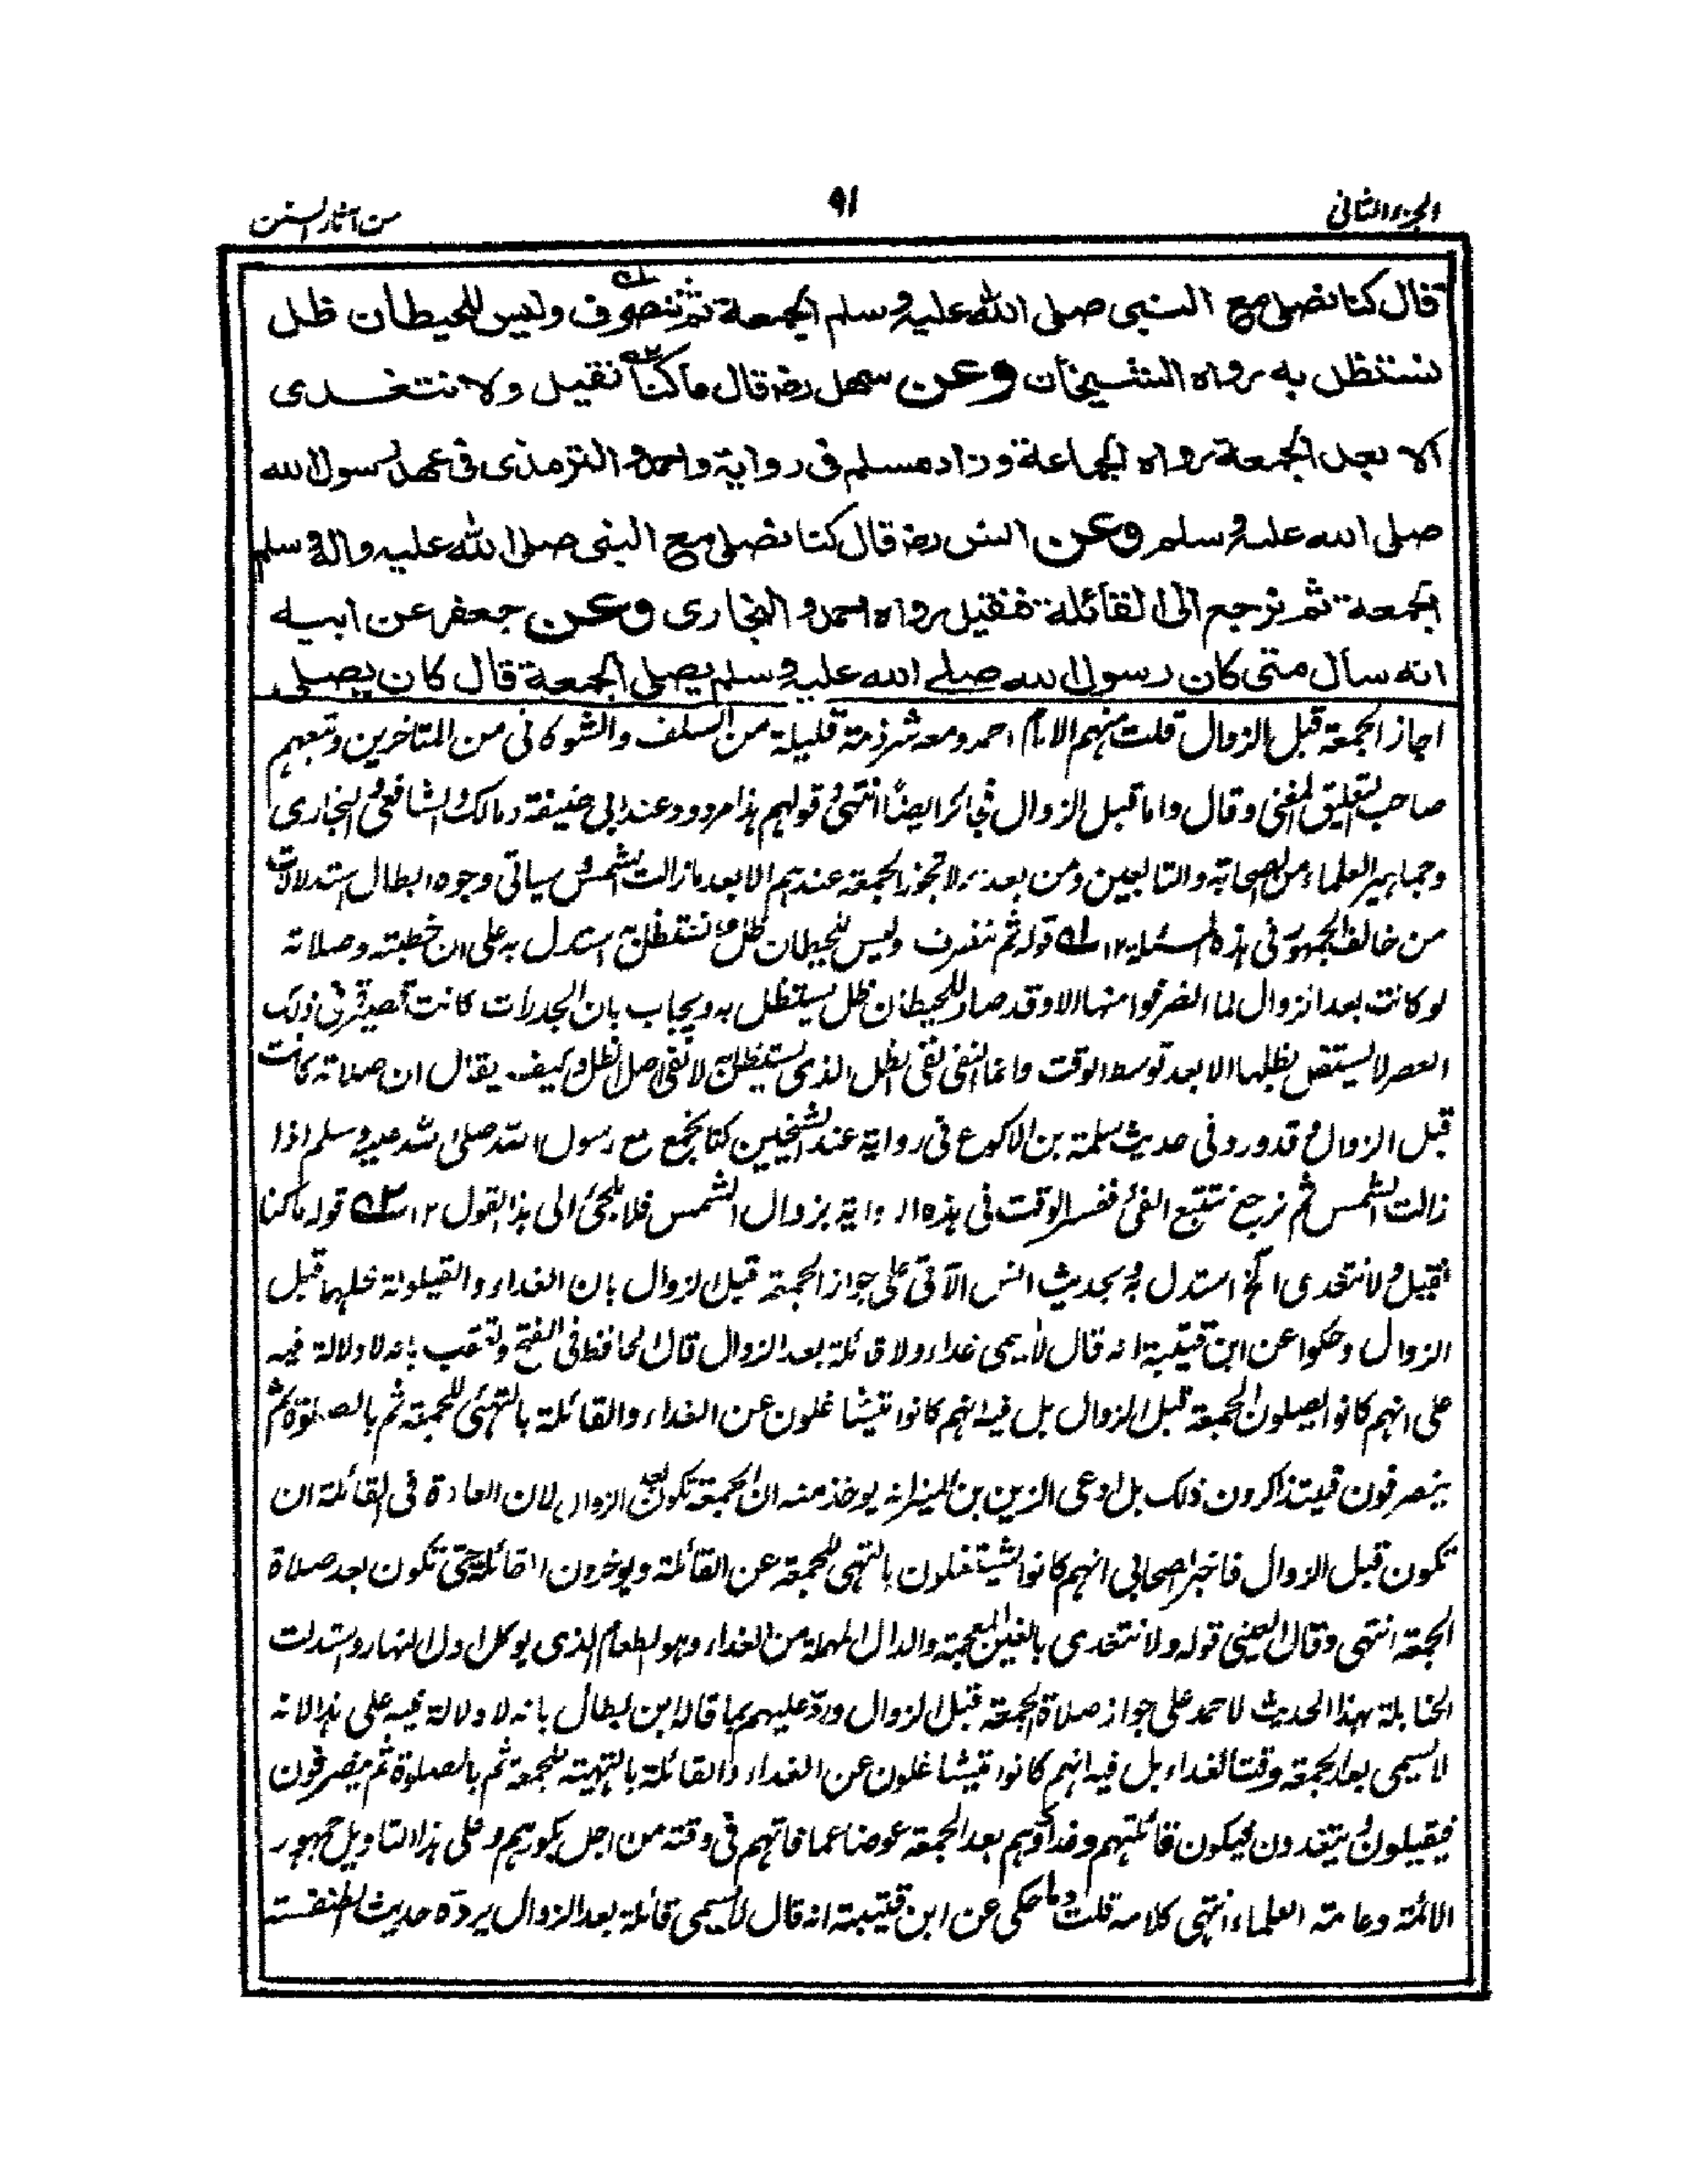 الجزء الثاني
٩١
من آثار السنن
قال كنا نصلى مع النبى صلى الله عليه وسلم الجمعة ثم ننصرف وليس للحيطان ظل
نستظل به رواه الشيخان وعن سهل رضـ قال ما كنا نقيل ولا نتغدى
الا بعد الجمعة رواه الجماعة وزاد مسلم فى رواية واحمد والترمذى فى عهد رسول الله
صلى الله عليه وسلم وعن انس رضـ قال كنا نصلى مع النبى صلى الله عليه واله وسلم
الجمعة ثم نرجع الى القائلة فنقيل رواه احمد والبخارى وعن جعفر عن ابيه
انه سأل متى كان رسول الله صلى الله عليه وسلم يصلى الجمعة قال كان يصلى
اجاز الجمعة قبل الزوال قلت منهم الامام احمد ومعه شرذمة قليلة من السلف والشوكانى من المتاخرين وتبعهم
صاحب التعليق المغنى وقال واما قبل الزوال فجائز ايضًا انتهى وقولهم هذا مردود عند ابى حنيفة ومالك والشافعى والبخارى
وجماهير العلماء من الصحابة والتابعين ومن بعدهم لا تجوز الجمعة عندهم الا بعد ما زالت الشمس وسياتى وجوه ابطال استدلالات
من خالف الجمهور فى هذه المسئلة ١٢ ؎١ قوله ثم ننصرف وليس للحيطان ظل نستظل به استدل به على ان خطبته وصلاته
لو كانت بعد الزوال لما انصرفوا منها الا وقد صار للحيطان ظل يستظل به ويجاب بان الجدرات كانت قصيرة فى ذلك
العصر لا يستظل بظلها الا بعد توسط الوقت وانما النفى نفى الظل الذى يستظل به لا نفى اصل الظل وكيف يقال ان صلاته كانت
قبل الزوال وقد ورد فى حديث سلمة بن الاكوع فى رواية عند الشيخين كنا نجمع مع رسول الله صلى الله عليه وسلم اذا
زالت الشمس ثم نرجع نتتبع الفئ ففسر الوقت فى هذه الرواية بزوال الشمس فلا يلجئ الى هذا القول ١٢ ؎٢ قوله ما كنا
نقيل ولا نتغدى الخ استدل به وبحديث انس الآتى على جواز الجمعة قبل الزوال بان الغداء والقيلولة محلهما قبل
الزوال وحكوا عن ابن قتيبة انه قال لا يسمى غداء ولا قائلة بعد الزوال قال الحافظ فى الفتح وتعقب بانه لا دلالة فيه
على انهم كانوا يصلون الجمعة قبل الزوال بل فيه انهم كانوا يتشاغلون عن الغداء والقائلة بالتهئ للجمعة ثم بالصلوة ثم
ينصرفون فيتذاكرون ذلك بل ادعى الزين بن المنير انه يوخذ منه ان الجمعة تكون بعد الزوال لان العادة فى القائلة ان
تكون قبل الزوال فاخبر الصحابى انهم كانوا يشتغلون بالتهئ للجمعة عن القائلة ويوخرون القائلة حتى تكون بعد صلاة
الجمعة انتهى وقال العينى قوله ولا نتغدى بالغين المعجمة والدال المهملة من الغداء وهو الطعام الذى يوكل اول النهار واستدلت
الحنابلة بهذا الحديث لاحمد على جواز صلاة الجمعة قبل الزوال ورد عليهم بما قاله ابن بطال بانه لا دلالة فيه على هذا لانه
لا يسمى بعد الجمعة وقت الغداء بل فيه انهم كانوا يتشاغلون عن الغداء والقائلة بالتهيئة للجمعة ثم بالصلوة ثم ينصرفون
فيقيلون ويتغدون فيكون قائلتهم وغداؤهم بعد الجمعة عوضا عما فاتهم فى وقته من اجل بكورهم وعلى هذا التاويل جمهور
الائمة وعامة العلماء انتهى كلامه قلت وما حكى عن ابن قتيبة انه قال لا يسمى قائلة بعد الزوال يرده حديث الطنفسة